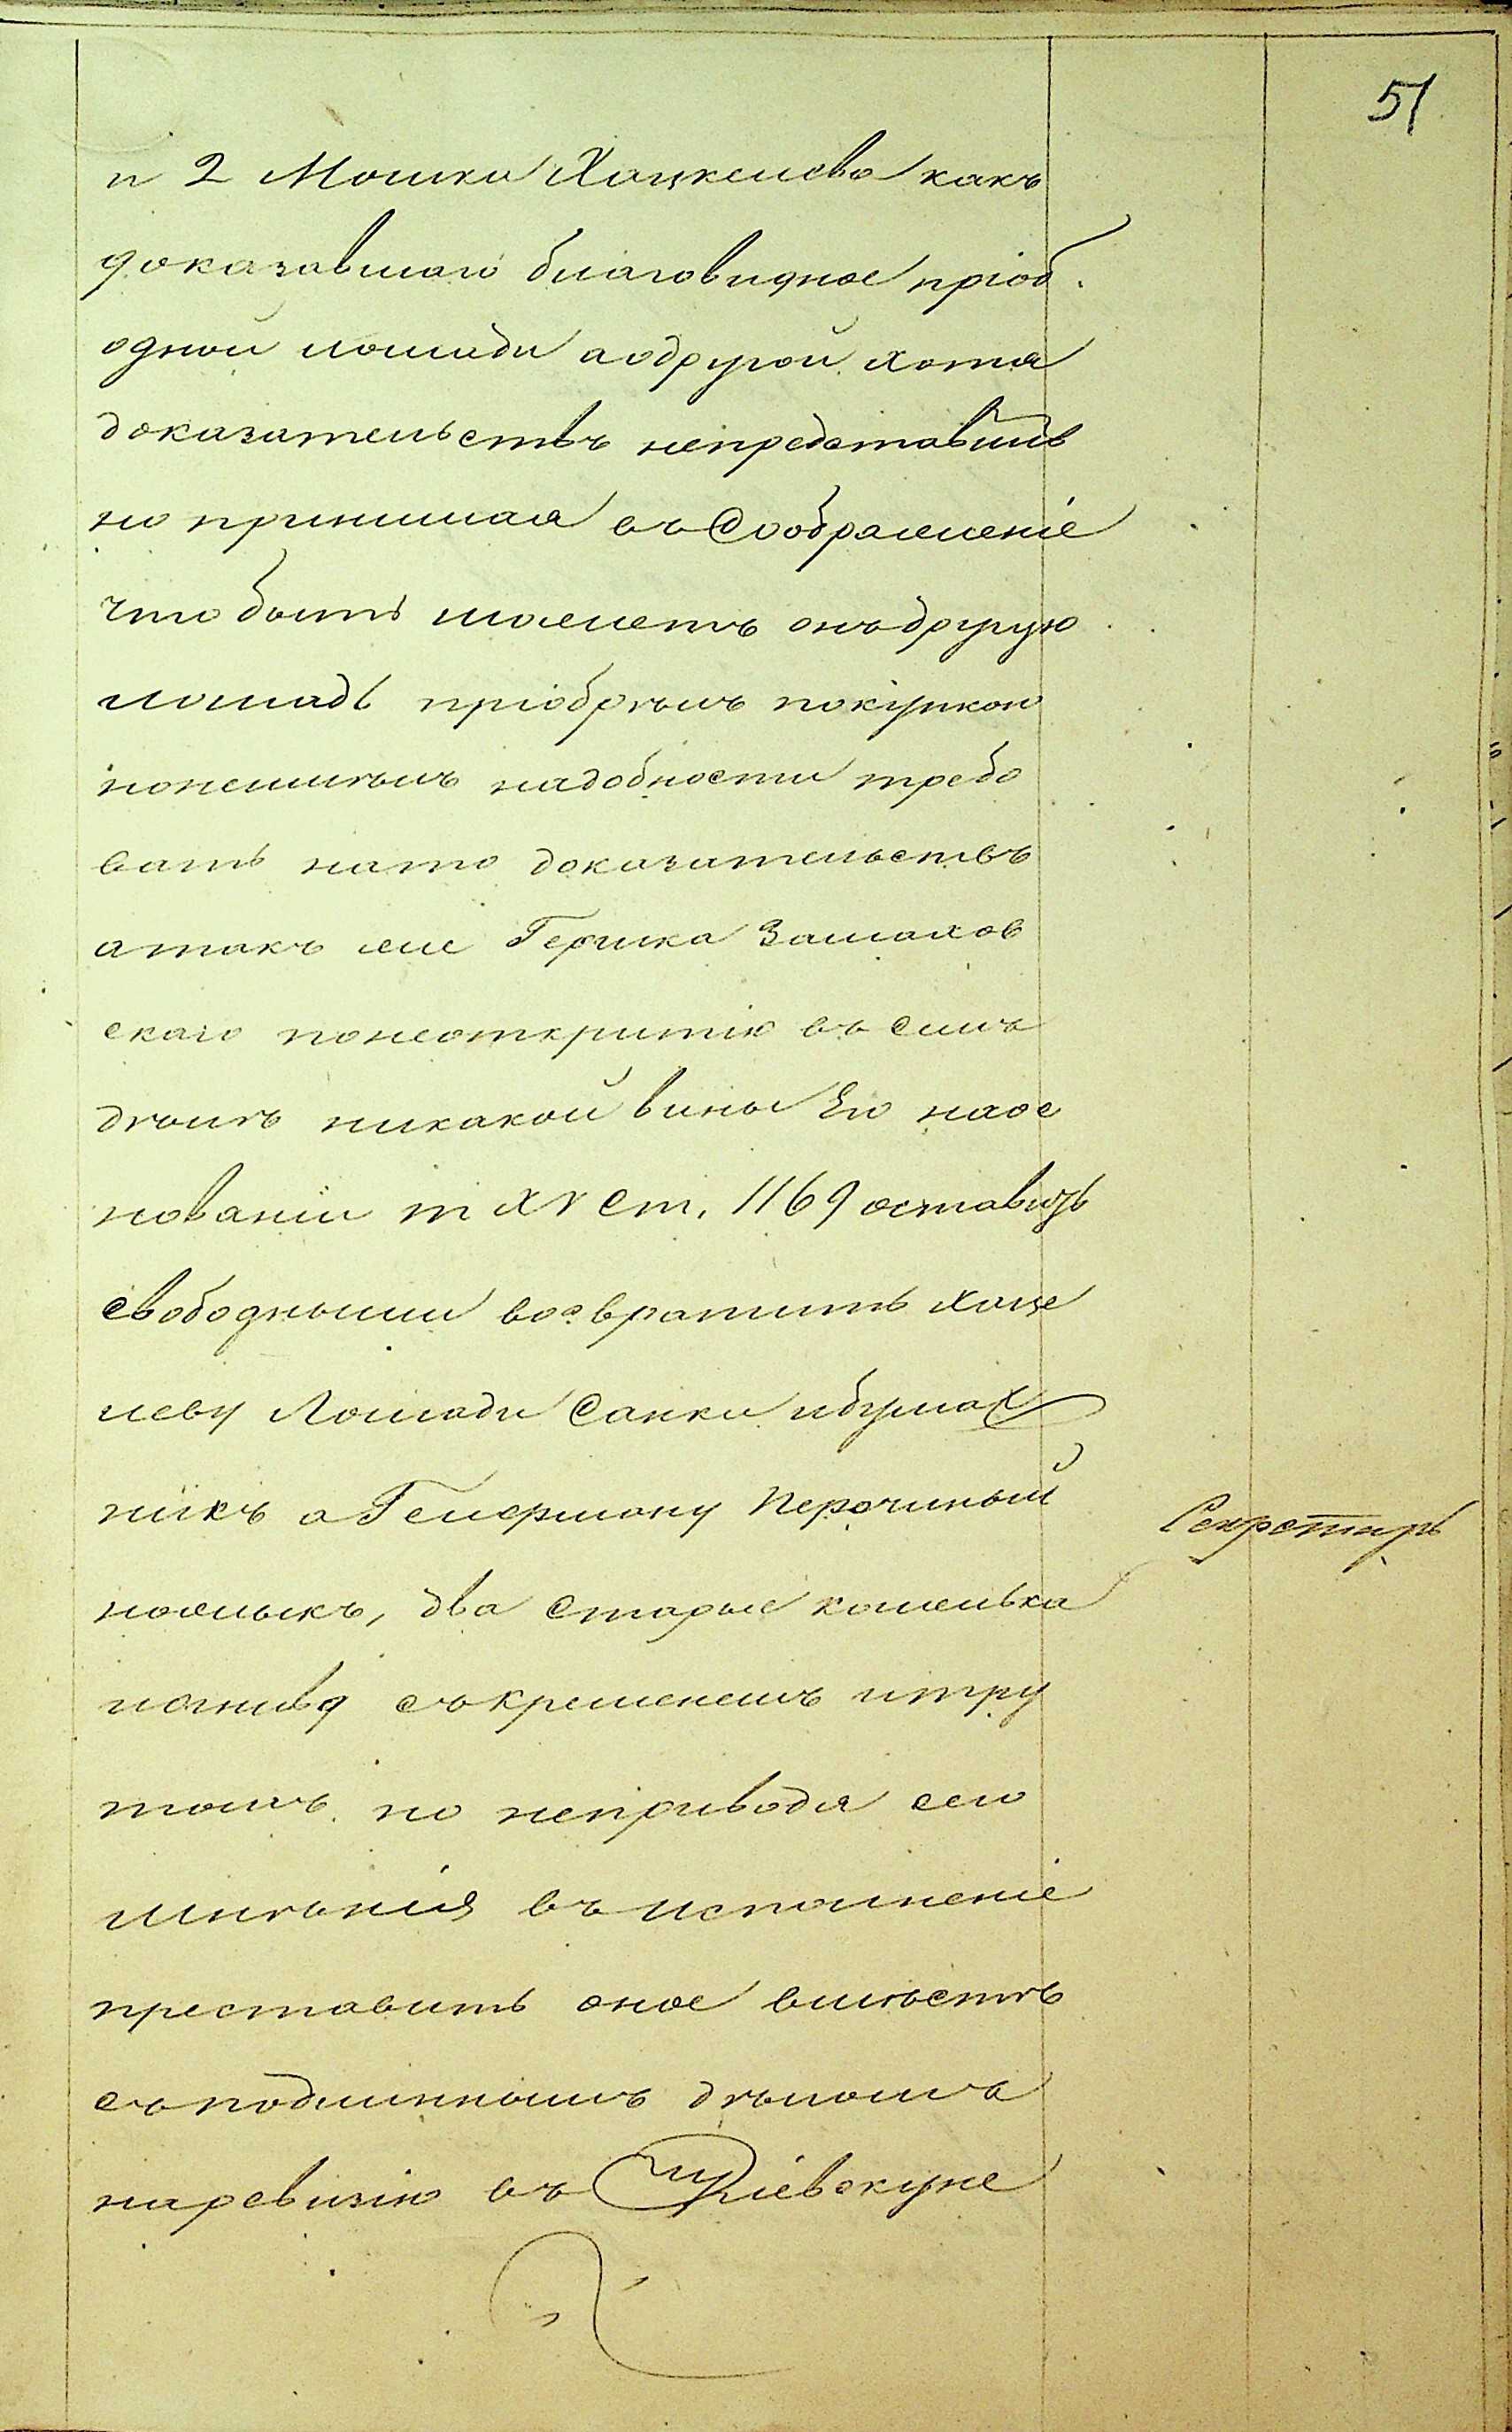 51
п 2 Мошка Хацкелева какъ
доказавшаго благовидное пріоб.
одной лошади а одругой хотя
доказательствъ непредставивъ
но принимая въ Соображеніе
что быть можетъ онъ другую
лошадь пріобрѣлъ покупкою
нонеимѣлъ надобности требо
вать нато доказательствъ
атакъ же Гершка Замахов
скаго понеоткритію въ симъ
дѣлѣ никакой вины Его наос
нованіи т XV Ст. 1169 оставить
свободными возвратить Хаце
леву Лошади Санки
никъ а Гелерману Перочиный
ножыкъ, два Старые кошелька
иогниво съкременемъ итру
томъ. но неприводя сего
мнѣнія въ исполненіе
преставить оное вмѣстѣ
съподлиннымъ дѣломъ
наревизію въ Кіевскую
Секретарь